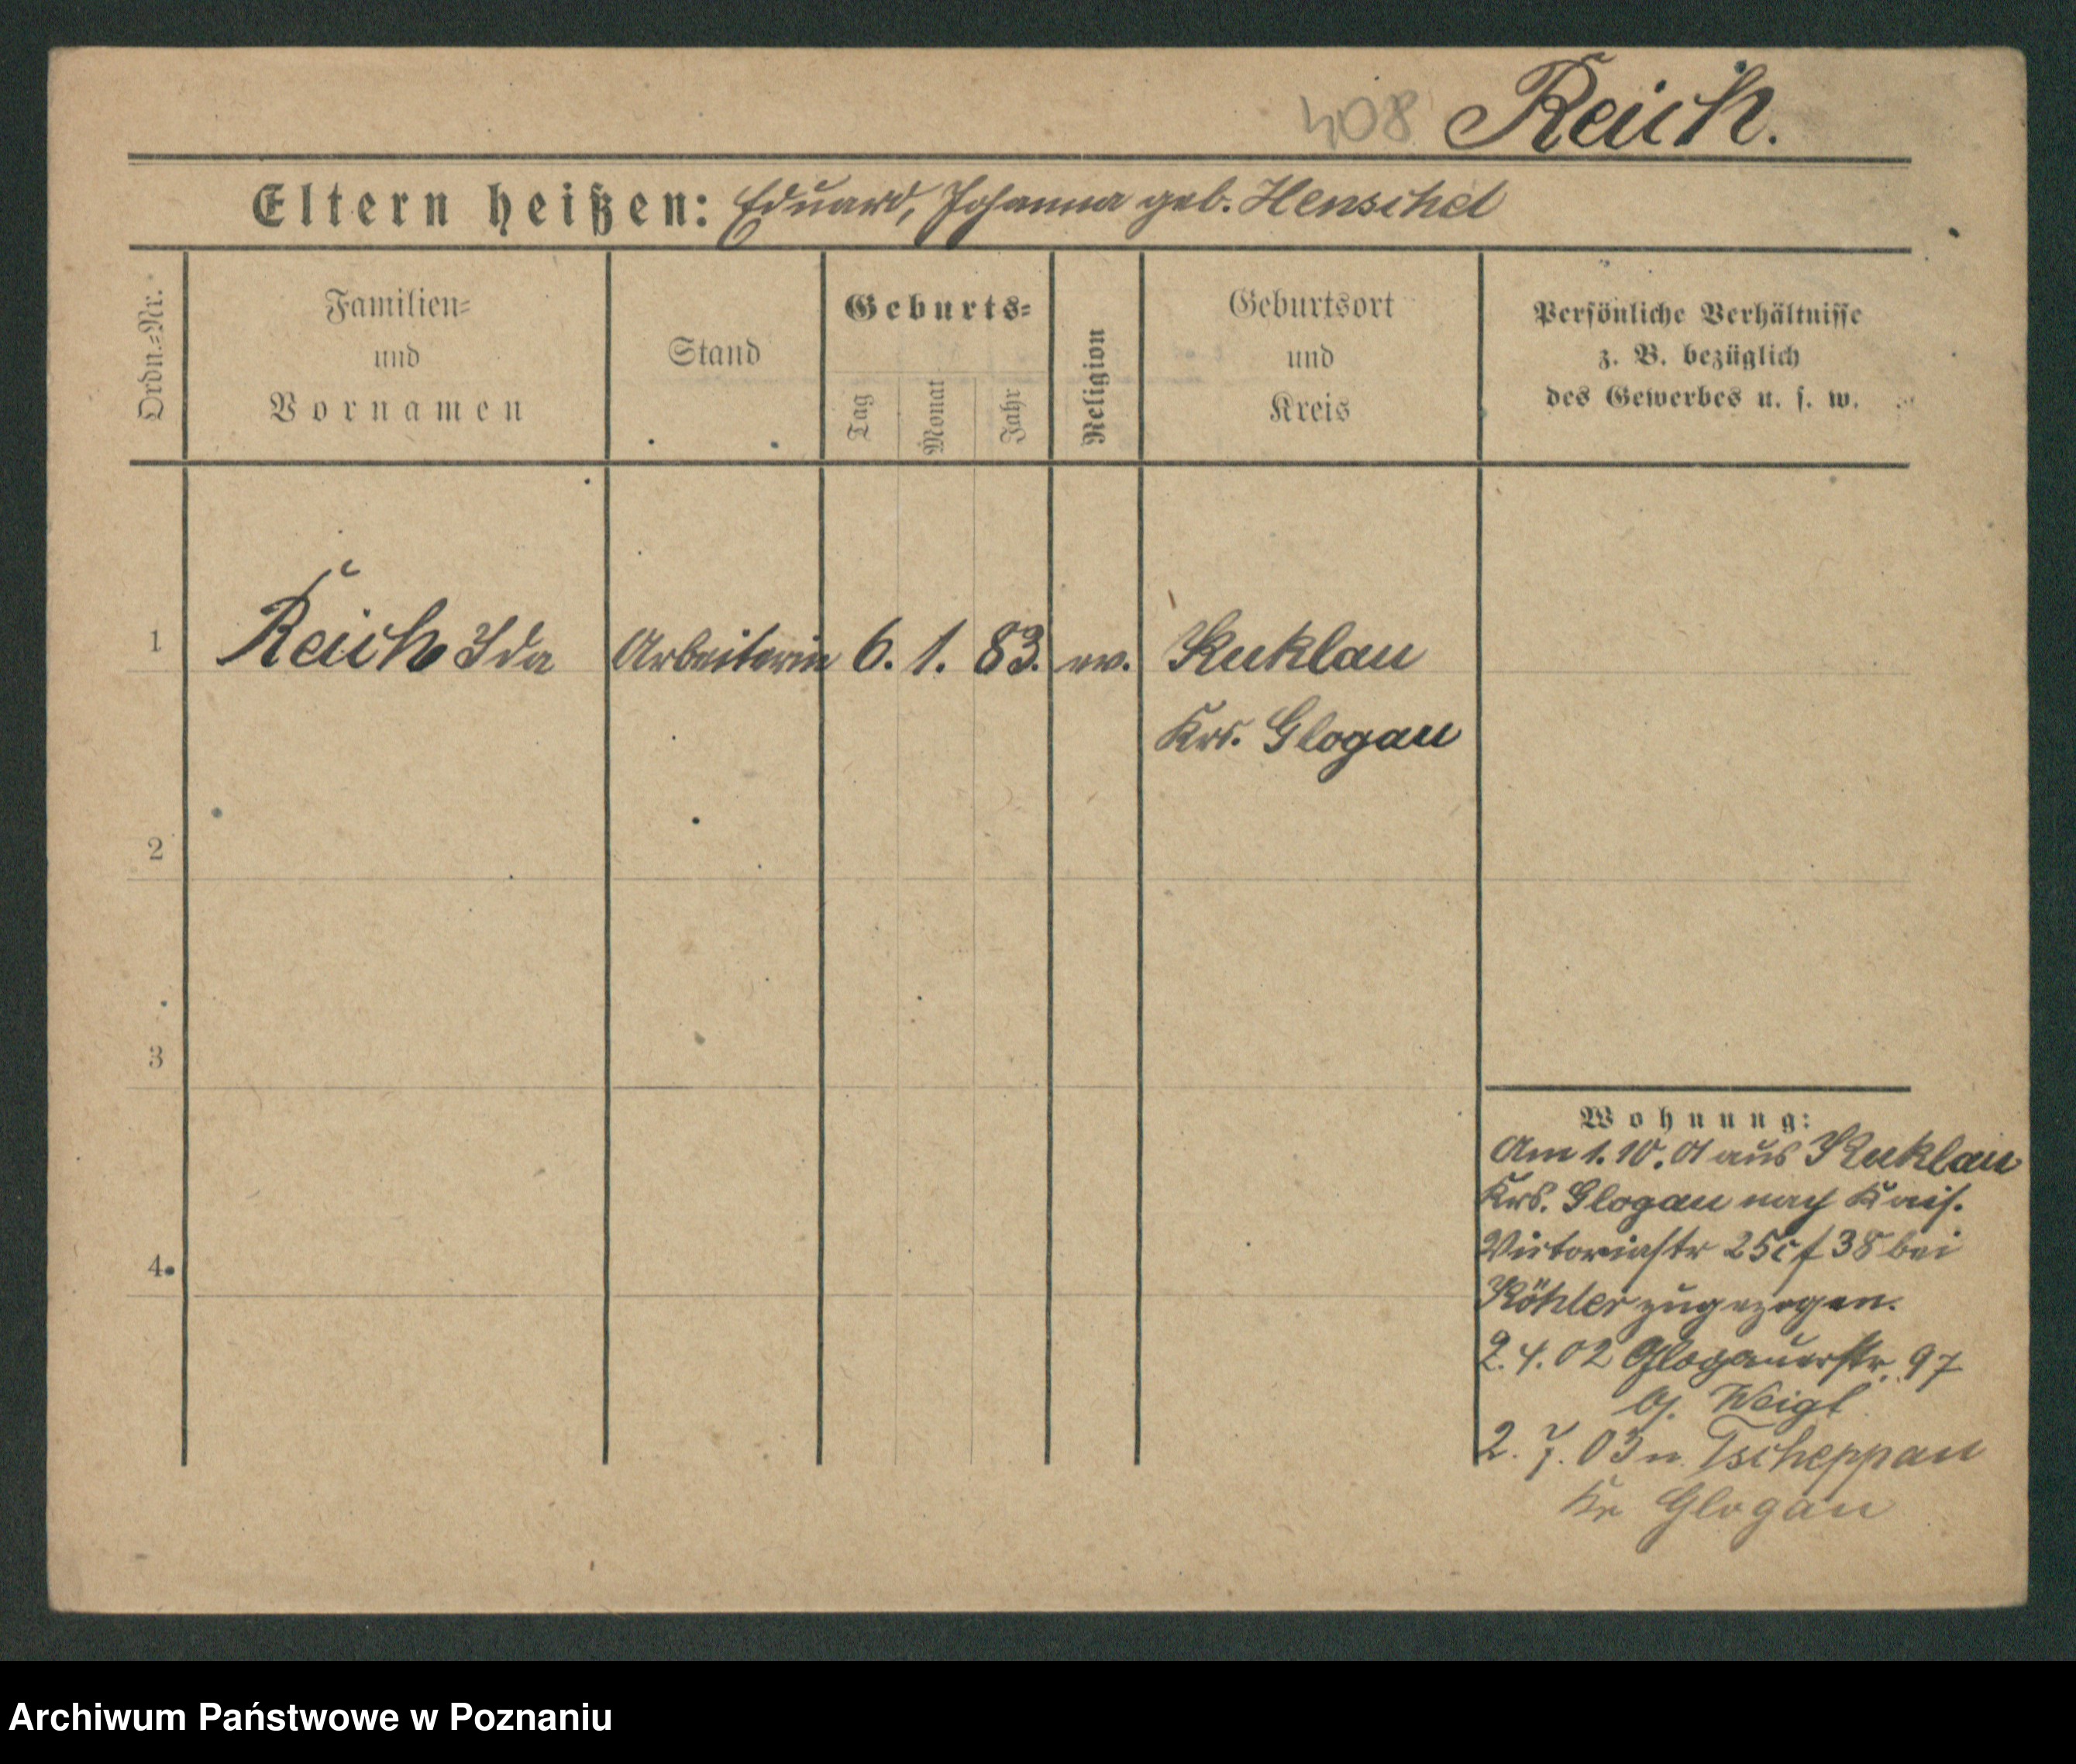 408 Reich.
Eltern heißen: Eduard, Johanna geb. Henschel
Ordn.-Nr.
Familien-
und
Vornamen
Stand
Geburts-
Tag
Monat
Jahr
Religion
Geburtsort
und
Kreis
Persönliche Verhältnisse
z. B. bezüglich
des Gewerbes u. s. w.
1 Reich Ida Arbeiterin 6. 1. 83. ev. Kuklau
Krs. Glogau
2
3
4.
Wohnung:
Am 1.10.01 aus Kuklau
Krs. Glogau nach Kais.
Victoriastr 25 38 bei
Köhler zugezogen.
2.4.02 Glogauerstr. 97
b/ Weigt
2. 7. 03 n. Tscheppau
Kr Glogau
Archiwum Państwowe w Poznaniu